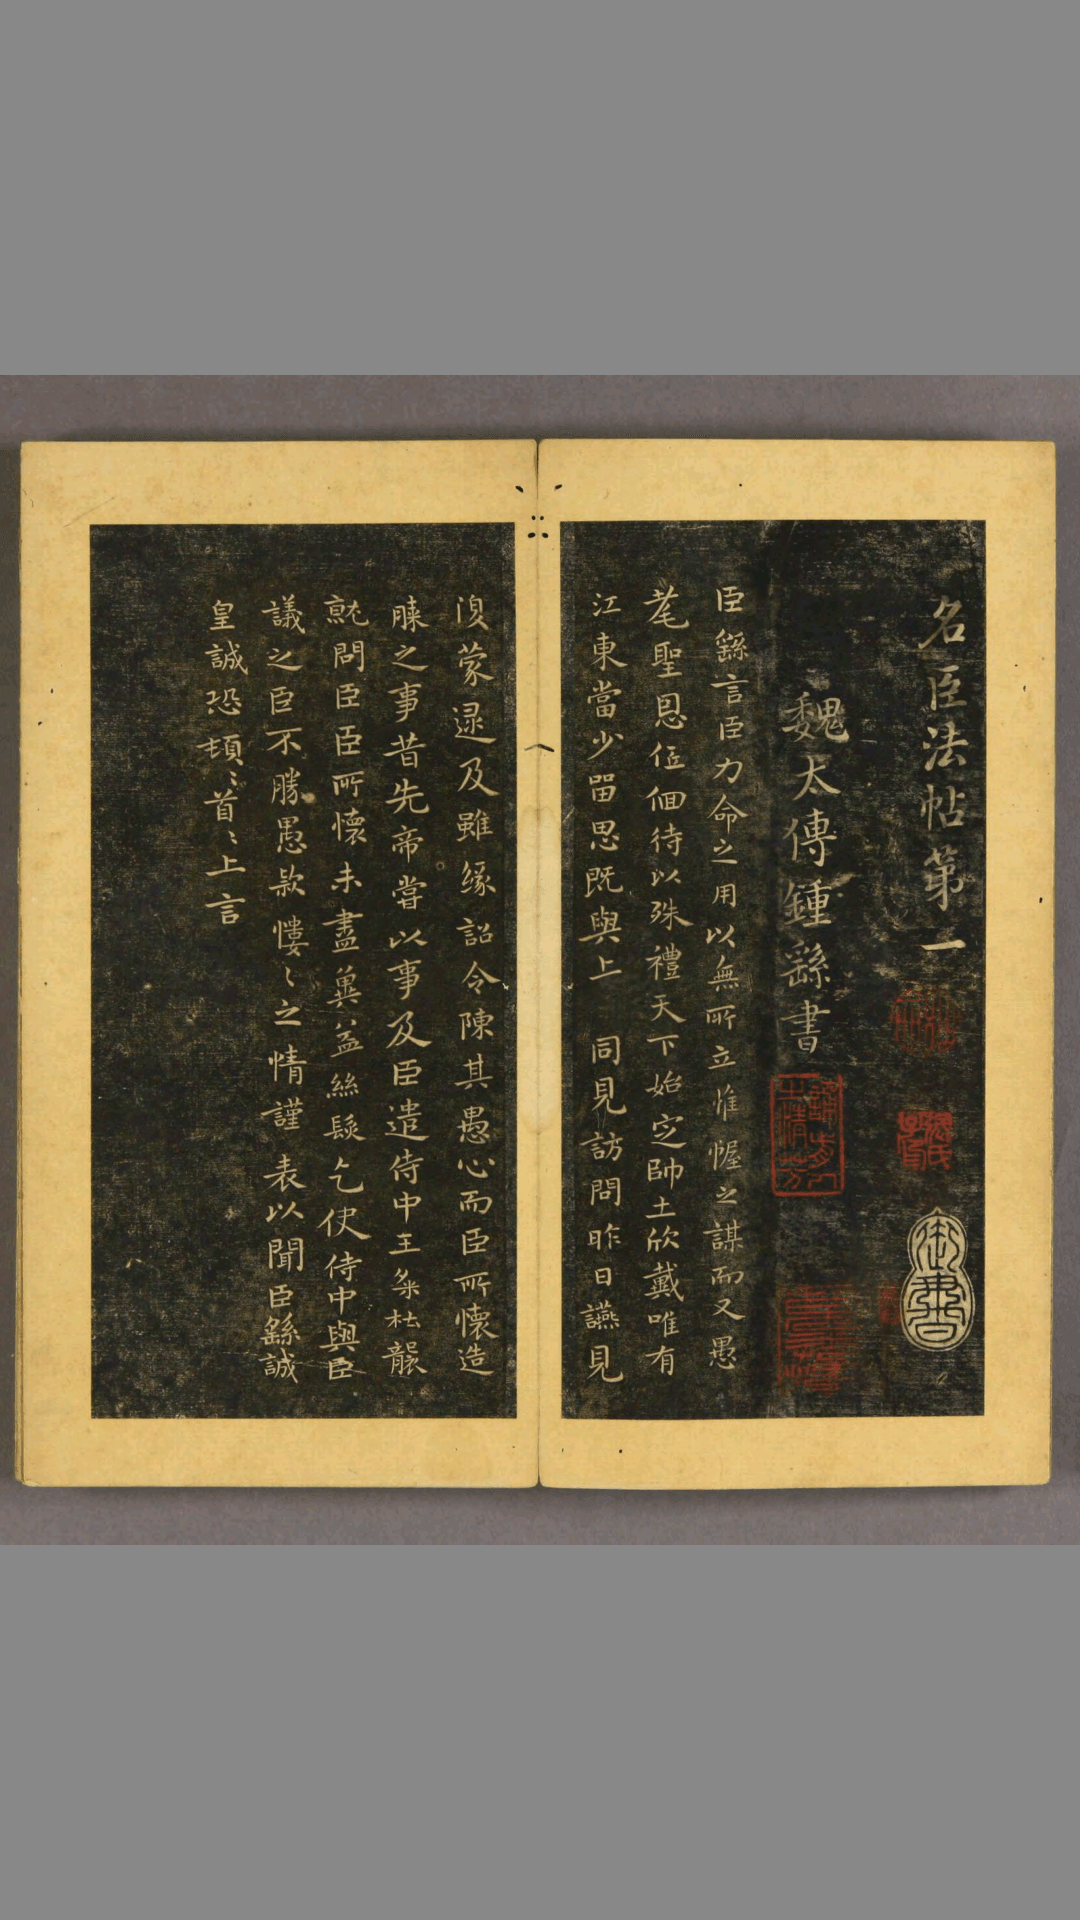 名臣法帖第一
魏太傅鍾繇書
臣繇言臣力命之用以無所立惟幄之謀而又愚
耄聖恩低佪待以殊禮天下始定帥土欣戴唯有
江東當少留思既與上 同見訪問昨日讌見
須蒙逮及雖緣詔令陳其愚心而臣所懷造
膝之事昔先帝嘗以事及臣遣侍中王粲杜襲
就問臣臣所懷未盡冀益絲髮乞使侍中與臣
議之臣不勝愚款慺〻之情謹 表以聞臣繇誠
皇誠恐頓〻首〻上言
御書